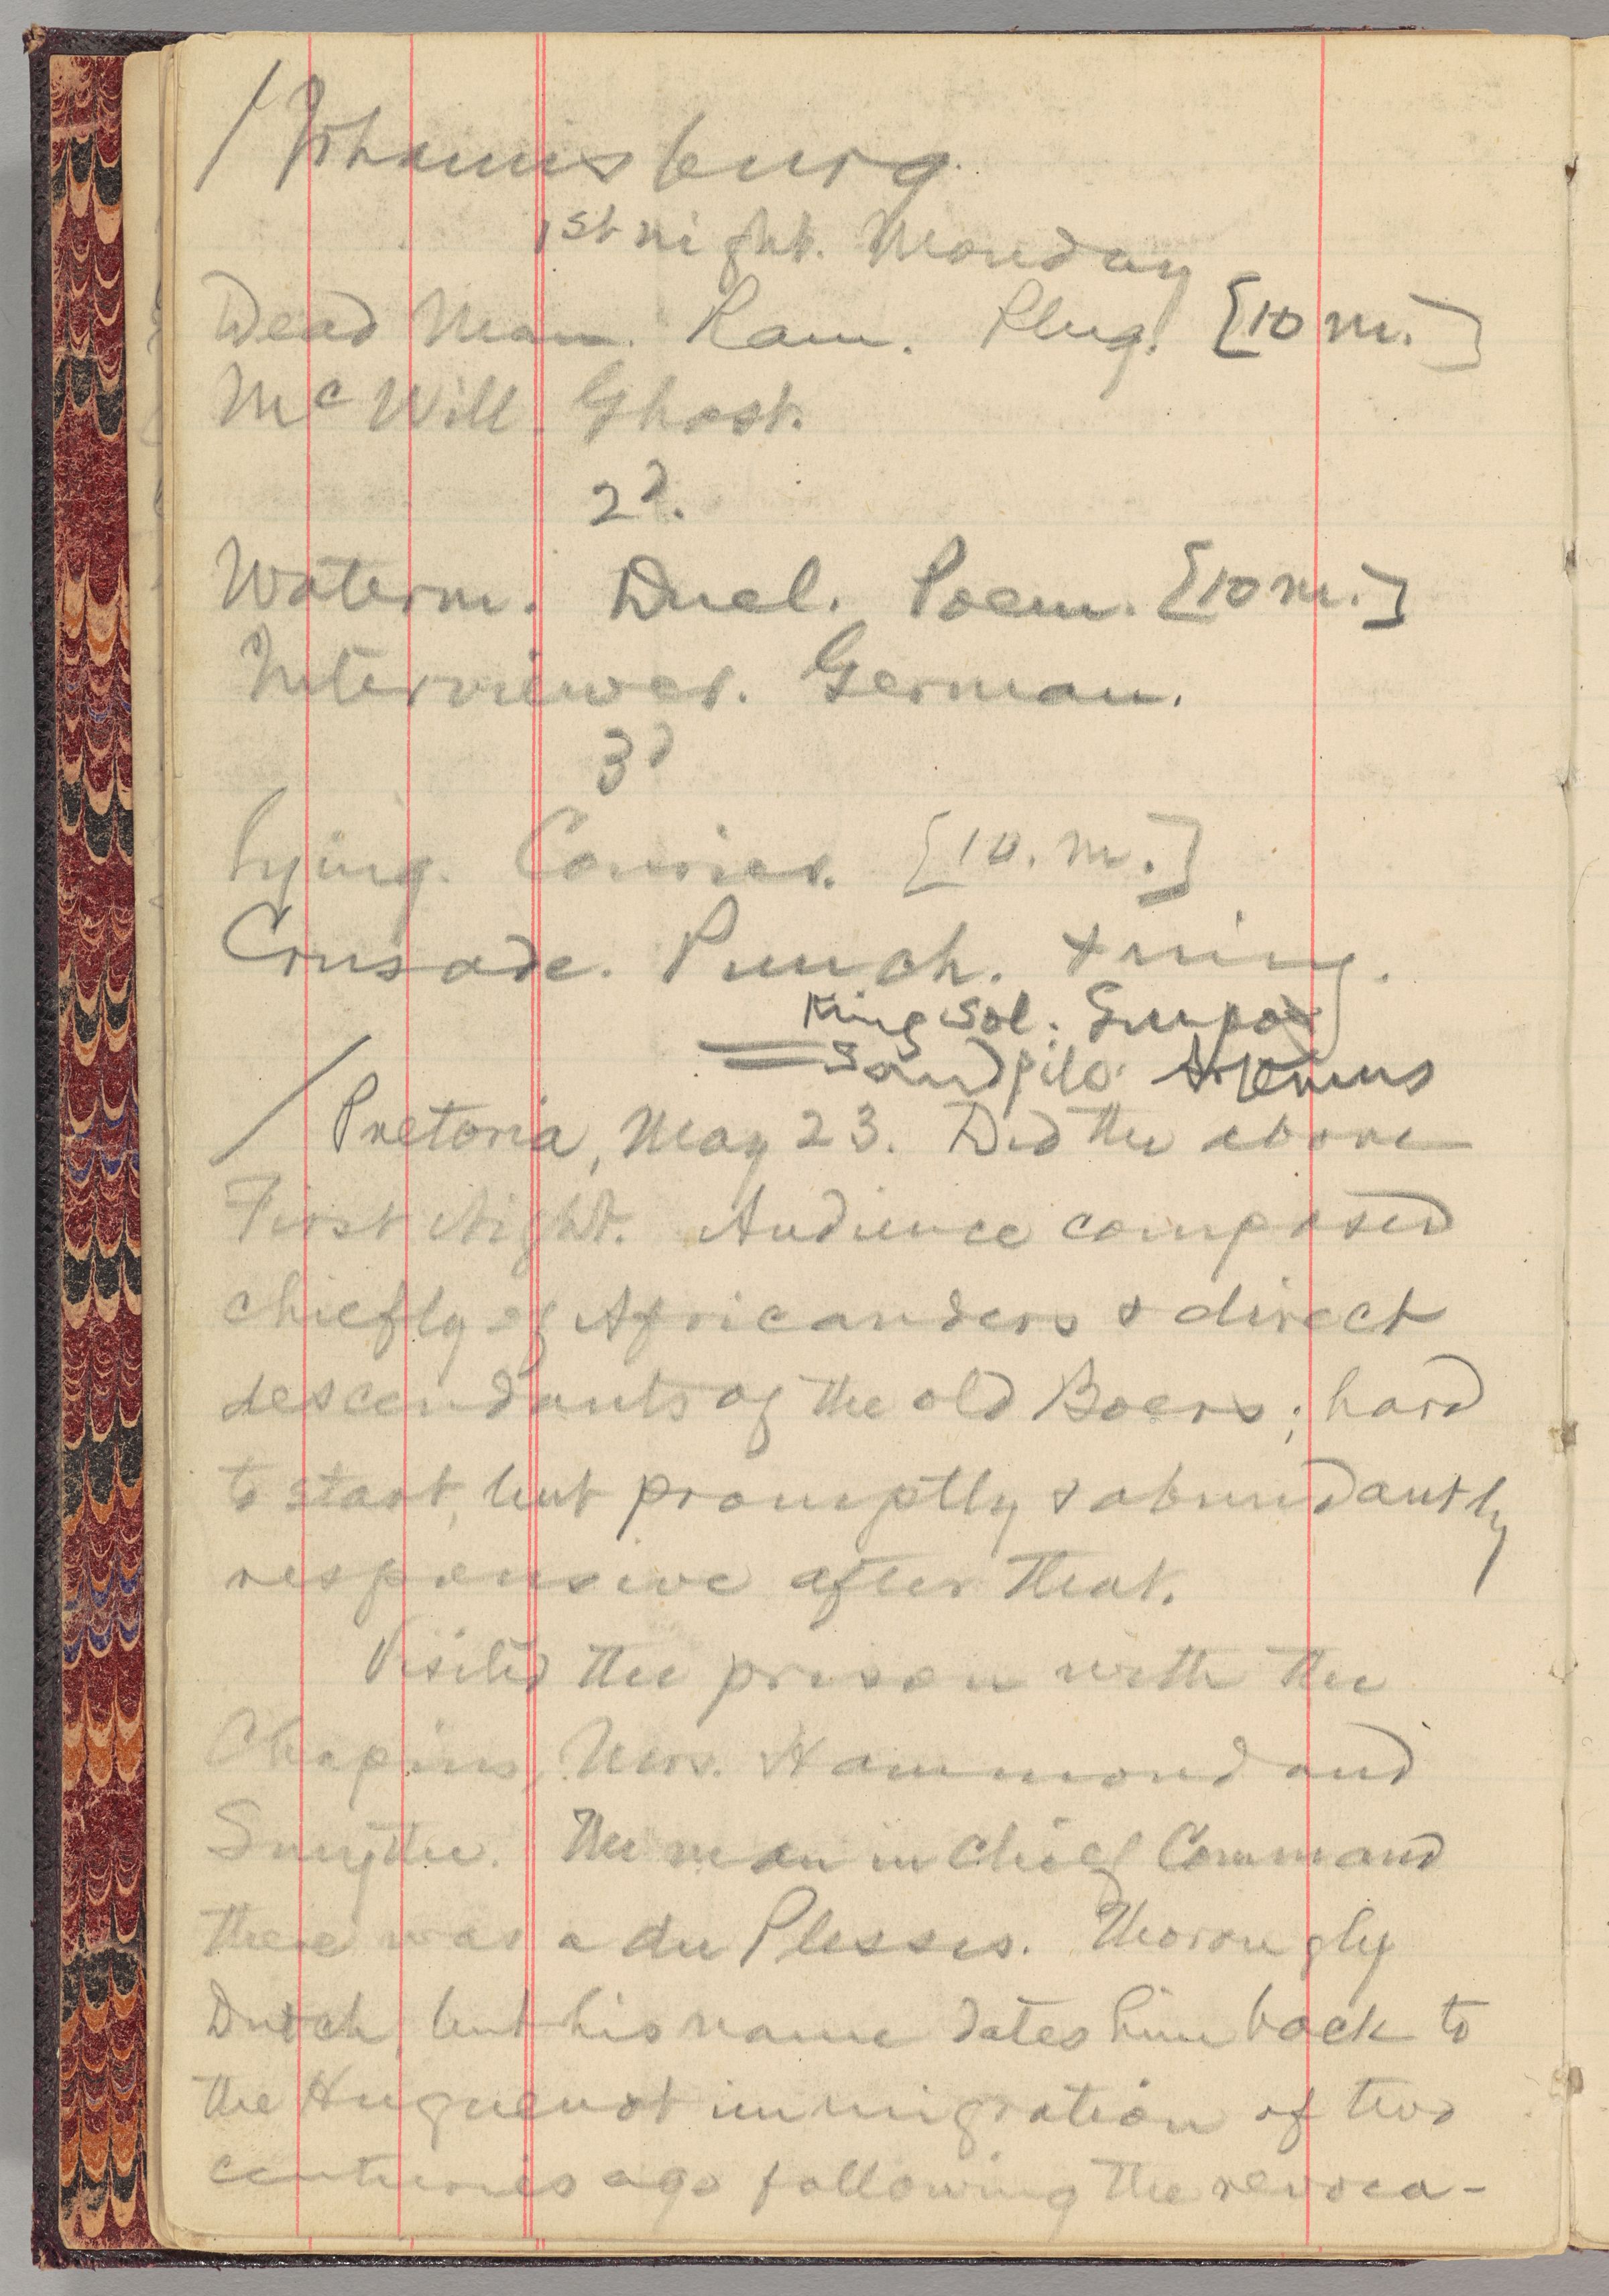 / Johannisburg.
1st night. Monday
Dead Man. Ram. Plug. [10 m.]
McWill. Ghost.
2d.
Waterm. Duel. Poem. [10 m.]
Interviewer. German.
3d
Lying. Courier. [10. m.]
Crusade. Punch. + ning.
King Sol.
Sandpile. Artemus
/ Pretoria, May 23. Did the above
First Night. Audience composed
chiefly of Africanders & direct
descendants of the old Boers; hard
to start, but promptly & abundantly
responsive after that.
Visited the prison with the
Chapins, Mrs. Hammond and
Smythe. The man in chief Command
there was a du Plessis. Thoroughly
Dutch, but his name dates him back to
the Huguenot immigration of two
centuries ago following the revoca-